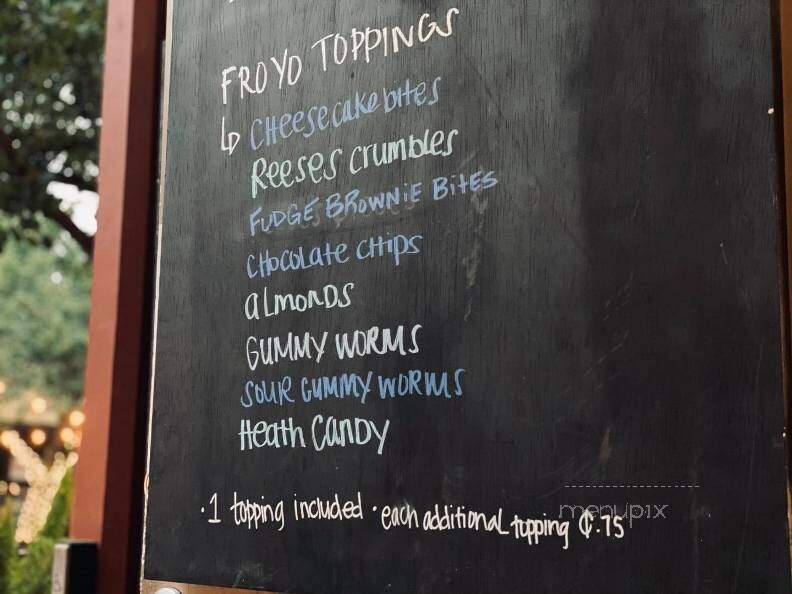 FROYO TOPPINGS
↳ CHeesecakebites
Reeses crumbles
FUDGE BROWNiE BitES
CHocolate cHips
aLmonDs
GUMMY WORMS
SOUR GUMMY WORMS
Heath CANDY
·1 topping included ·each additional topping ¢.75
menupix